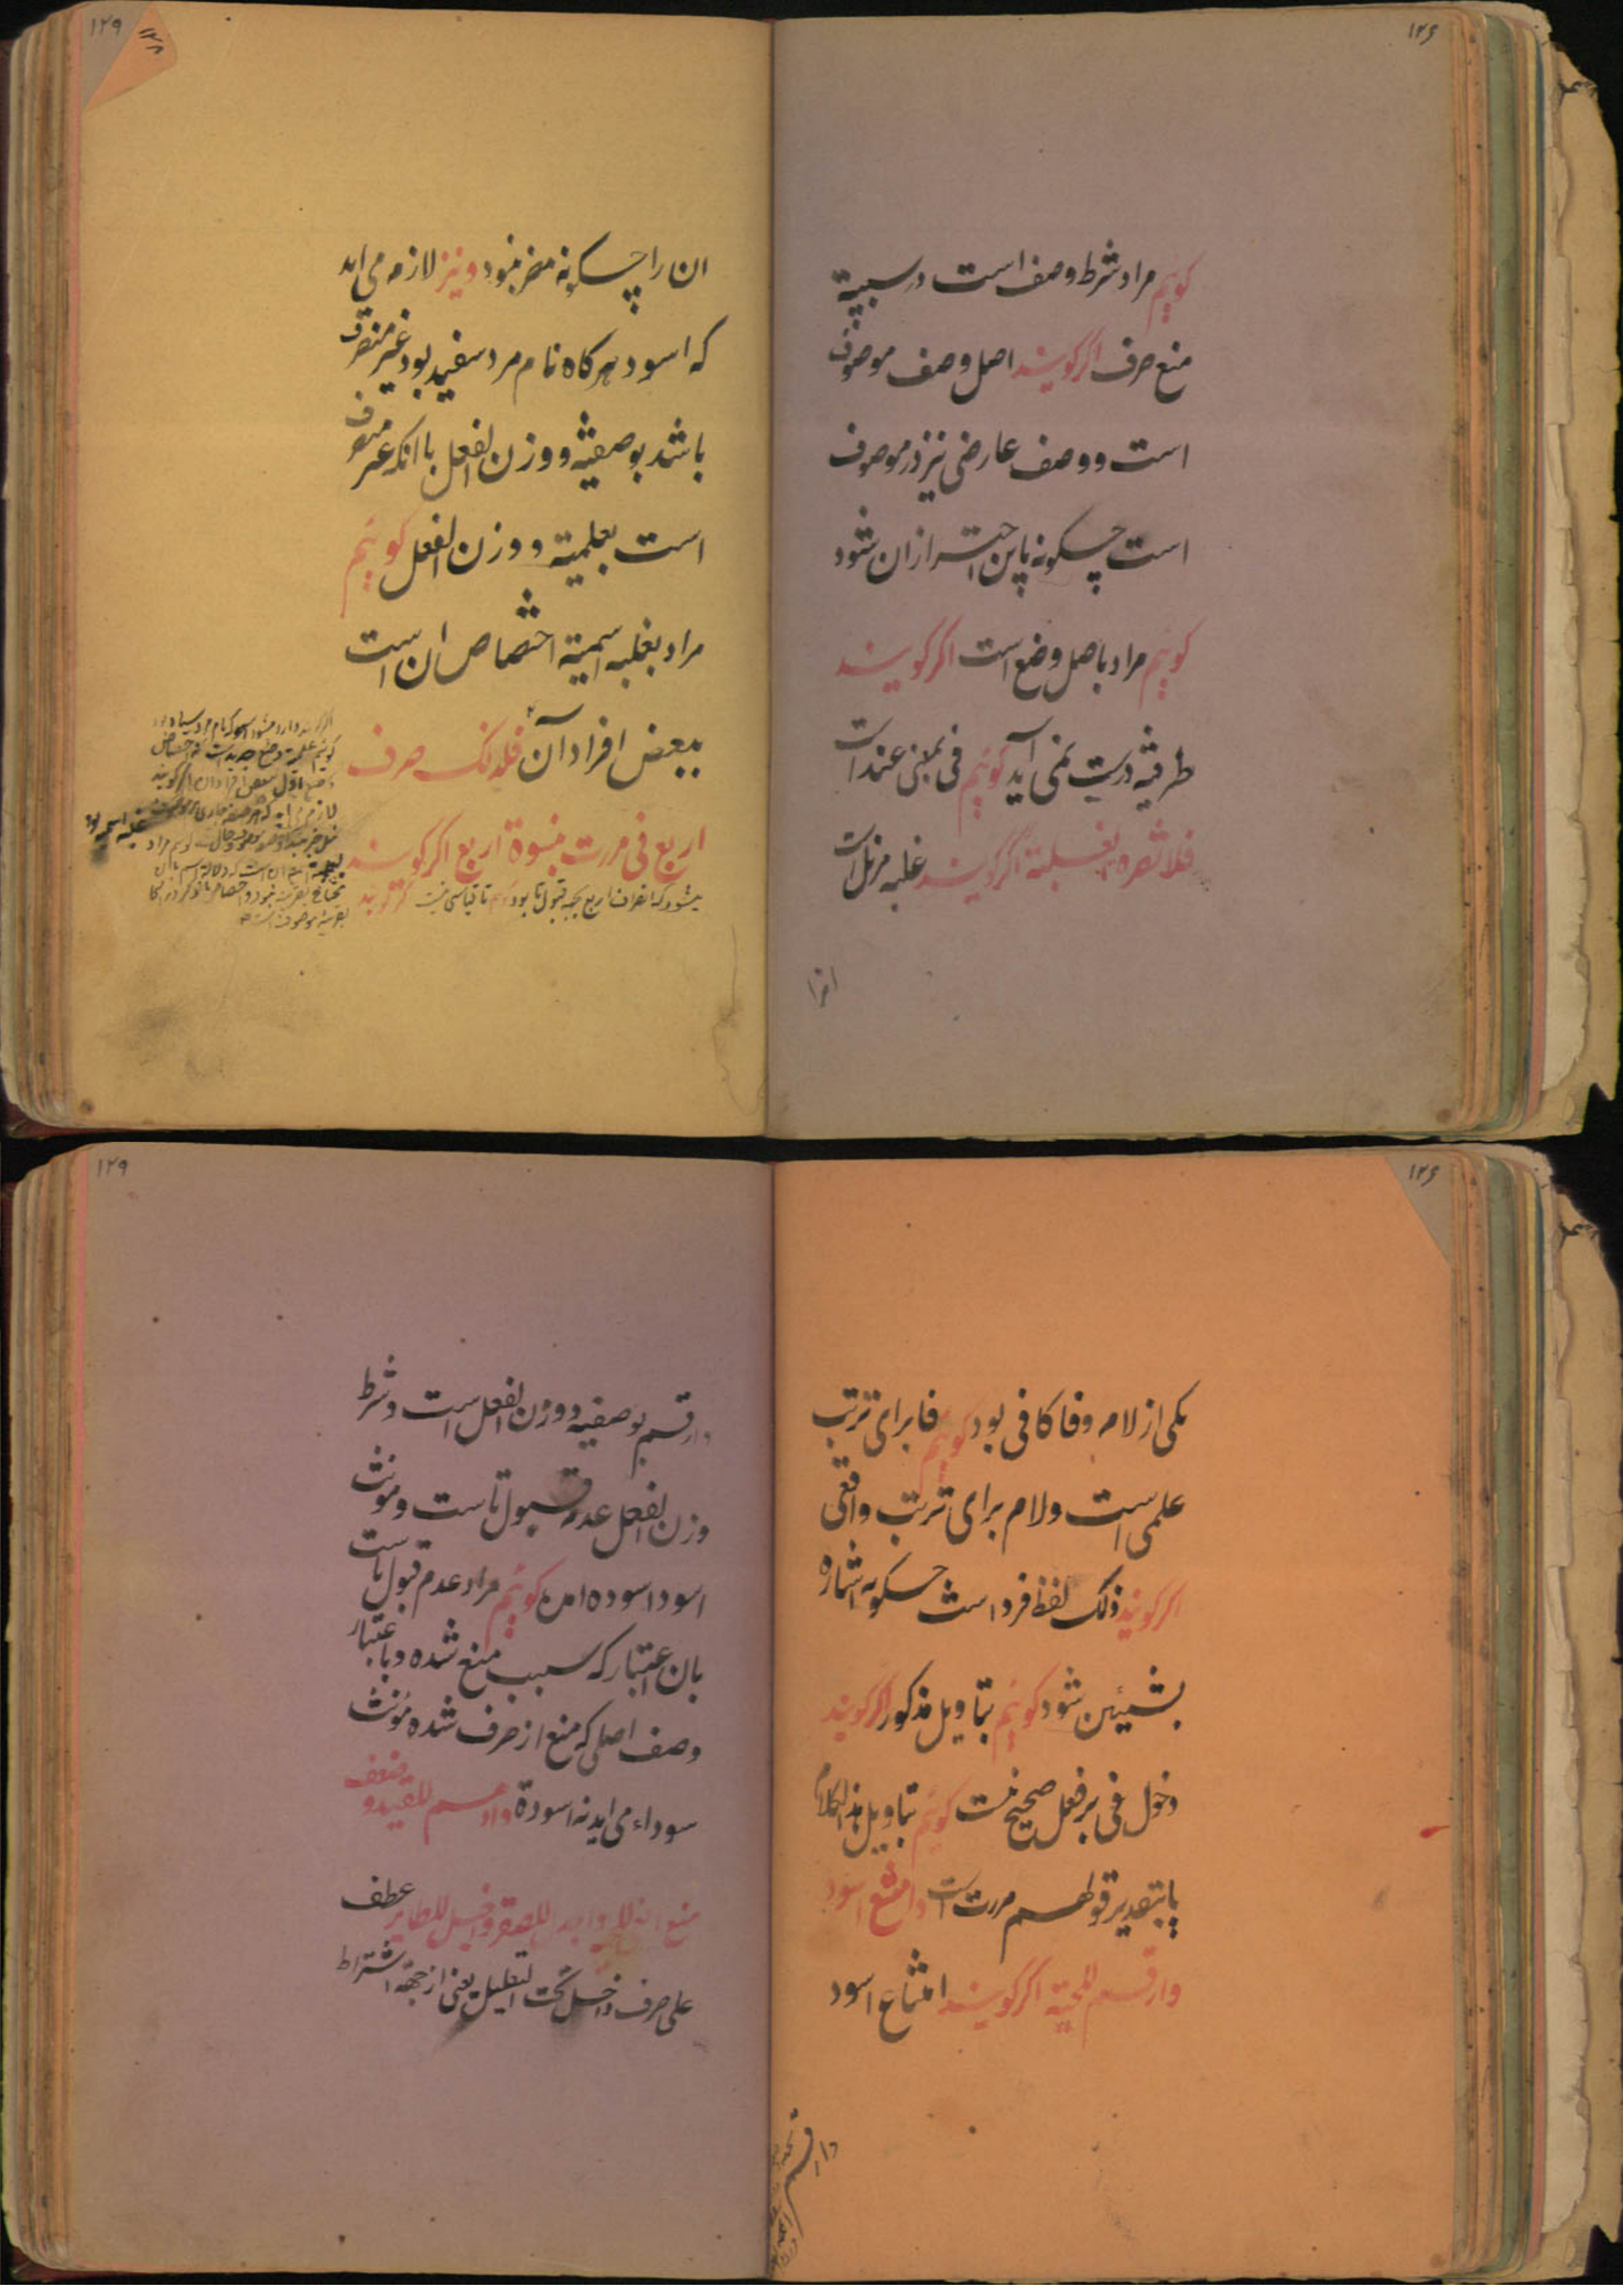 ۱۲۶
گوئیم مراد شرط وصف است در سببیة
منع صرف اگر گویند اصل وصف موصوف
است و وصف عارضی نیز در موصوف
است چگونه باین احتراز از ان شود
گوئیم مراد باصل وضع است اگر گویند
ظرفیة درست نمی آید گوئیم فی بمعنی عند است
فلا تضره الغلبة اگر گویند غلبه مزیل است
۱۲۹
۱۲۸
ان را چگونه مضر نبود و نیز لازم می اید
که اسود هرگاه نام مرد سفید بود غیر منصرف
باشد بوصفیة و وزن الفعل با انکه غیر منصرف
است بعلمیة و وزن الفعل گوئیم
مراد بغلبه اسمیة اختصاص ان است
ببعض افراد آن فلذلک صرف
اربع فی مررت بنسوة اربع اگر گویند
میشود که انصراف اربع بجهة قبول تا بود گوئیم تا قیاسی نیست اگر گویند
۱۲۶
یکی از لام و فا کافی بود گوئیم فا برای ترتب
علمی است و لام برای ترتب واقعی
اگر گویند ذلک لفظ فرد است چگونه اشاره
بشیئین شود گوئیم بتاویل مذکور اگر گویند
دخول فی بر فعل صحیح نیست گوئیم بتاویل هذا الکلام
یا بتقدیر قولهم مررت است و امتنع اسود
وارقم للحیة اگر گویند امتناع اسود
۱۲۹
وارقم بوصفیه و وزن الفعل است و شرط
وزن الفعل عدم قبول تا است و مونث
اسود اسوده امده گوئیم مراد عدم قبول تا است
بان اعتبار که سبب منع شده و باعتبار
وصف اصلی که منع از صرف شده مؤنث
سوداء می اید نه اسودة وادهم للقید و ضعف
منع افعی للحیة واجدل للصقر واخیل للطایر عطف
علی صرف داخل تحت التعلیل یعنی از جهة اشتراط